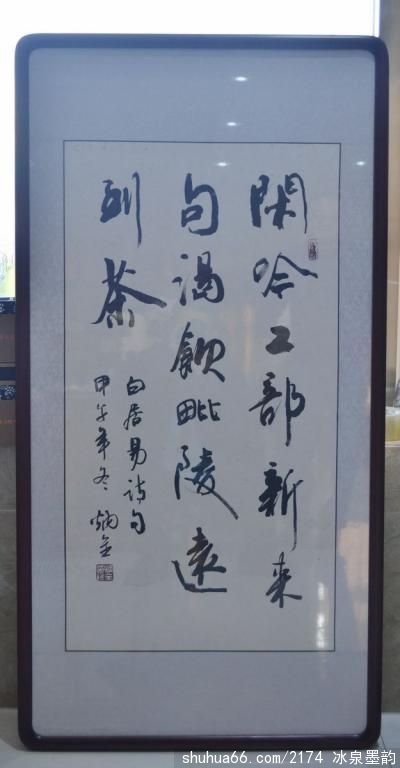 閑吟工部新来
句渴飲毗陵遠
到茶
白居易诗句
甲午年冬 炳金
shuhua66.com/2174 冰泉墨韵